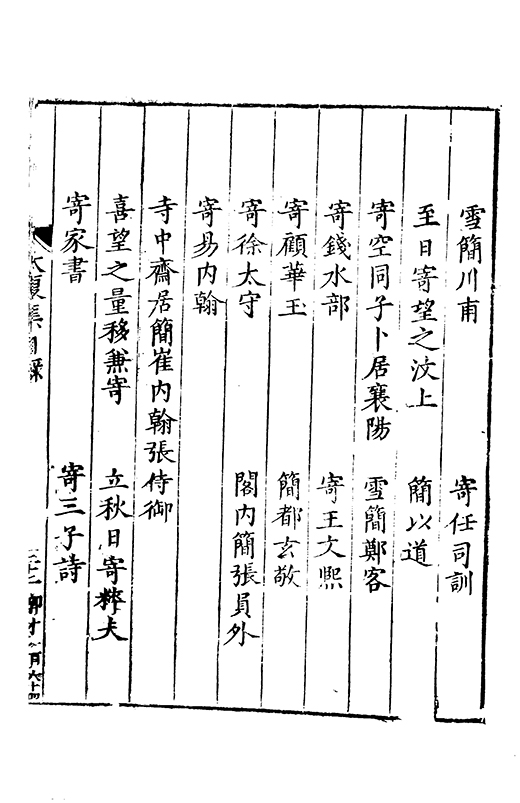 雪簡川甫　寄任司訓
至日寄望之汶上　簡以道
寄空同子卜居襄陽　雪簡鄭客
寄錢水部　寄王文熙
寄顧華玉　簡都玄敬
寄徐太守　閣内簡張員外
寄易内翰
寺中齋居簡崔内翰張侍御
喜望之量移兼寄　立秋日寄粹夫
寄家書　寄三子詩
大復集目錄